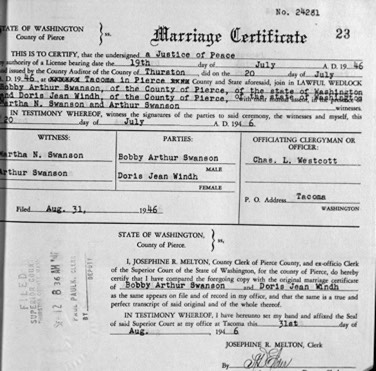 No. 24281
STATE OF WASHINGTON
County of Pierce
ss.
Marriage Certificate
23
THIS IS TO CERTIFY, that the undersigned a Justice of Peace
by authority of a License bearing date the 19th day of July A. D. 19 46
and issued by the County Auditor of the County of Thurston, did on the 20 day of July
A. D. 19 46, Tacoma in Pierce County and State aforesaid, join in LAWFUL WEDLOCK
Bobby Arthur Swanson, of the County of Pierce, of the state of Washington
and Doris Jean Windh, of the County of Pierce, of the state of Washington
Martha N. Swanson and Arthur Swanson witnesses.
IN TESTIMONY WHEREOF, witness the signatures of the parties to said ceremony, the witnesses and myself, this
20 day of July A. D. 194 6
WITNESS:
PARTIES:
OFFICIATING CLERGYMAN OR OFFICER:
Martha N. Swanson
Bobby Arthur Swanson
MALE
Chas. L. Westcott
Arthur Swanson
Doris Jean Windh
FEMALE
P. O. Address Tacoma
WASHINGTON
Filed Aug. 31, 1946
STATE OF WASHINGTON,
County of Pierce.
ss.
I, JOSEPHINE R. MELTON, County Clerk of Pierce County, and ex-officio Clerk
of the Superior Court of the State of Washington, for the county of Pierce, do hereby
certify that I have compared the foregoing copy with the original marriage certificate
of Bobby Arthur Swanson and Doris Jean Windh
as the same appears on file and record in my office, and that the same is a true and
perfect transcript of said original and of the whole thereof.
IN TESTIMONY WHEREOF, I have hereunto set my hand and affixed the Seal
of said Superior Court at my office at Tacoma this 31st day of
Aug. 194 6
JOSEPHINE R. MELTON, Clerk
By
FILED
SUPERIOR COURT
12 8 36 AM
DEPUTY